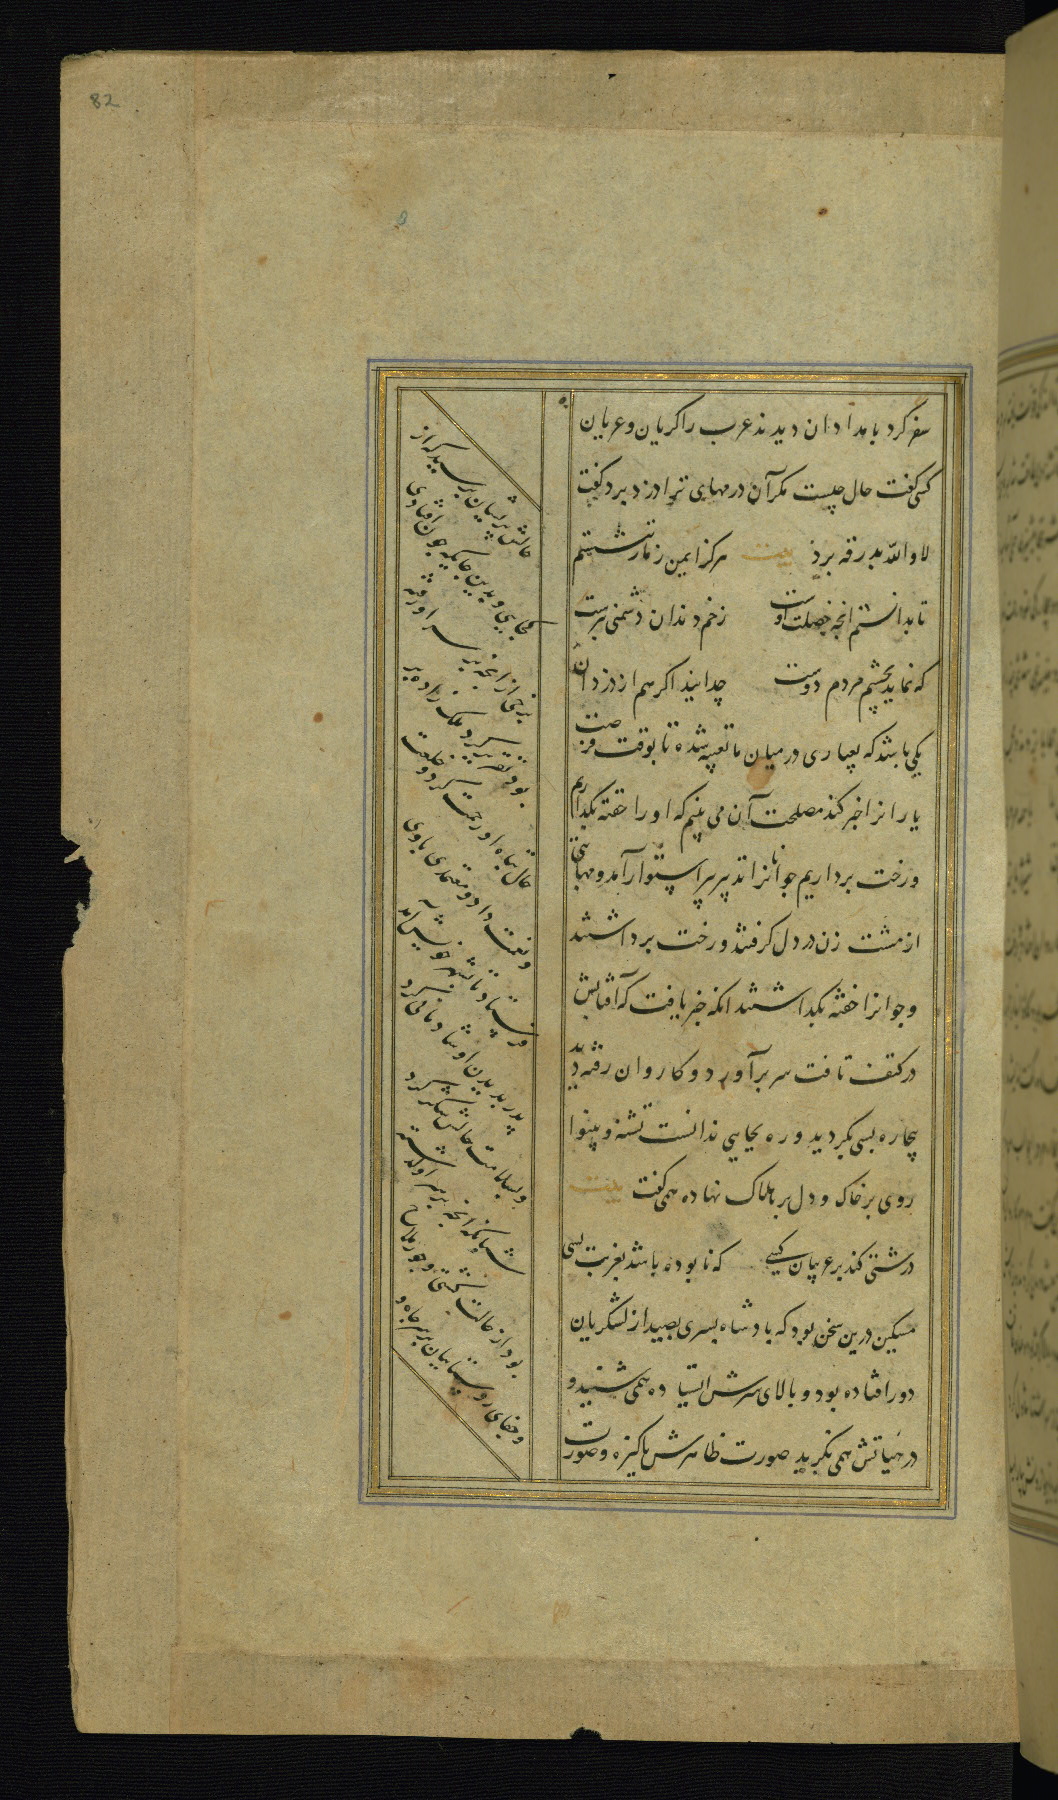 82
سفر کرد بامدادان دیدند عرب را کریان و عریان
کسی کفت حال چیست مکر آن درمهای ترا دزد برد کفت
لا والله بدرقه برد بیت هرکز ایمن ز مار ننشستم
تا بدانستم انچه خصلت اوست زخم دندان دشمنی بترست
که نماید بچشم مردم دوست چه دانید اکر هم از دزدان
یکی باشد که بعیاری در میان ما تعبیه شده تا بوقت فرصت
یارانرا خبر کند مصلحت آن می بینم که او را خفته بکذاریم
و رخت برداریم جوانانرا تدبیر پیر استوار آمد و مهابتی
از مشت زن در دل کرفتند و رخت برداشتند
و جوانرا خفته بکذاشتند انکه خبر یافت که آفتابش
در کتف تافت سر برآورد و کاروان رفته دید
بیچاره بسی بکردید و ره بجایی ندانست تشنه و بینوا
روی بر خاک و دل بر هلاک نهاده همی کفت بیت
درشتی کند بر غریبان کسی که نابوده باشد بغربت بسی
مسکین درین سخن بود که پادشاه پسری بصید از لشکریان
دور افتاده بود و بالای سرش ایستاده همی شنید و
در هیاتش همی نکرید صورت ظاهرش پاکیزه و صورت
حالش پریشان پرسید که از
کجایی و بدین جایکه چون افتادی
برخی از انچه بر سر او رفته
بود تقریر کرد ملک زاده بر
حال تباه او رحمت کرد و خلعت
و نعمت داد و معتمدی با وی
فرستاد تا بشهر خویش آمد
پدر بدیدن او شادمانی کرد
و بسلامت حالش شکر کرد
شبانکه انچه بر سر او کذشته
بود از حالت کشتی و جور ملاح
و جفای روستاییان بر سر چاه و